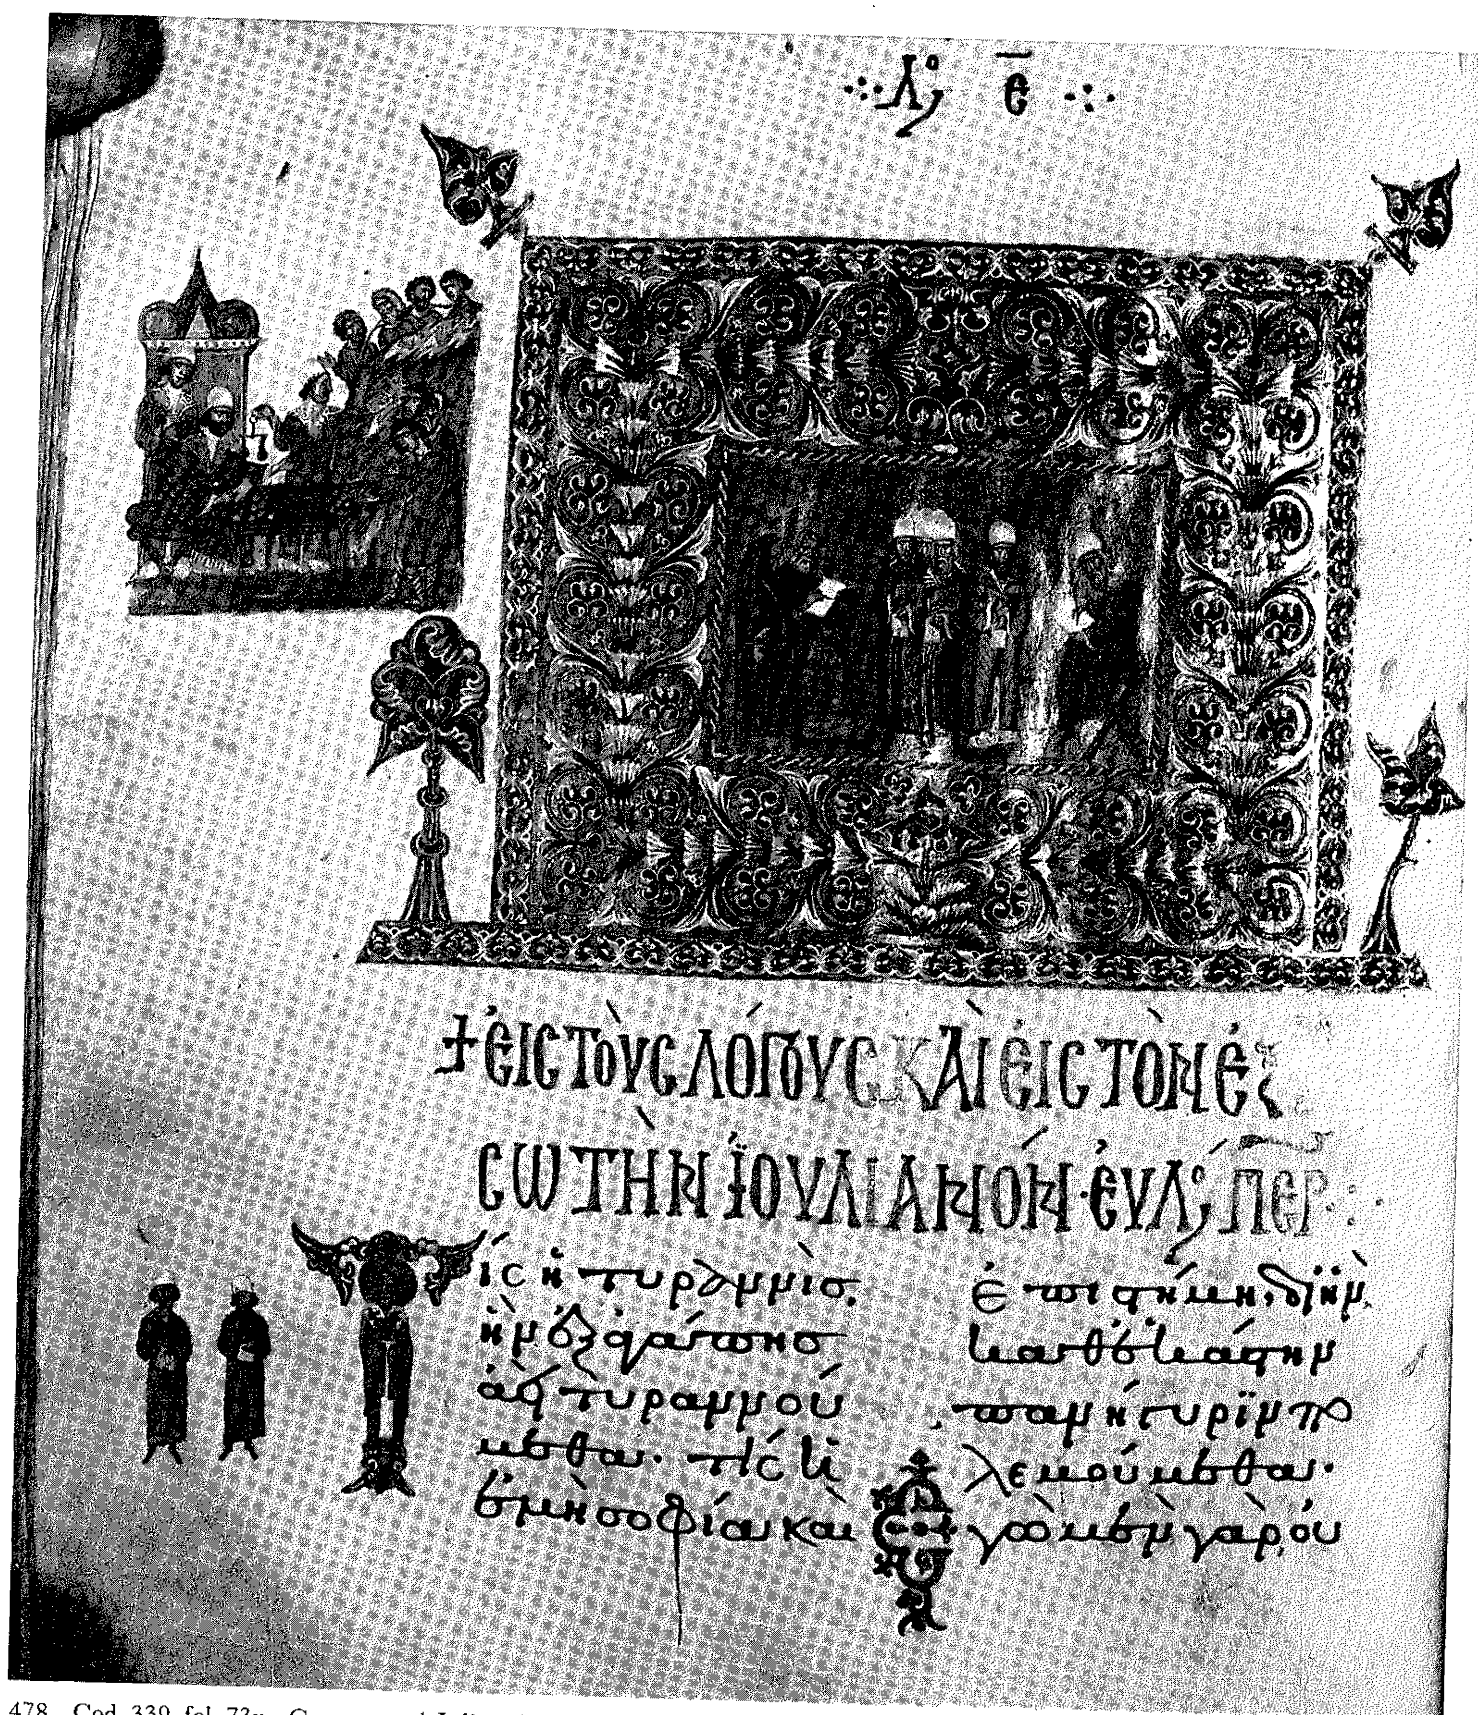 Λό ε
+ ΕΙΣ ΤΟΥΣ ΛΟΓΟΥΣ ΚΑΙ ΕΙΣ ΤΟΝ ΕΞΙ
ΣΩΤΗΝ ΙΟΥΛΙΑΝΟΝ· ΕΥΛο ΠΕΡ
Τίς ἡ τυραννὶς
ἣν ἐξ ἀγάπησ
ἀεὶ τυραννού
μεθα· τίς ἡ
ἐμὴ σοφία καὶ
ἐπιστήμη, δι ἣν
καθ ἑκάστην
πανήγυριν πο
λεμούμεθα·
Ἐγὼ μὲν γὰρ οὐ
478. Cod. 339, fol. 73v.